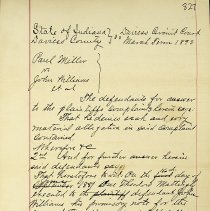 327
State of Indiana } Daviess Circuit Court
Daviess County } SS March Term 1893
Paul Miller
vs
John Williams
et al
The defendants for answer
to the plaintiffs complaint herein say
That he denies each and every
material allegation in said complaint
contained.
Wherefore &c
2nd And for further answer herein
said defendants say
That heretofore to wit: On the first day of
1889 One Theodore Matthews
executed to the plaintiff defendant
Williams his promissory note for the